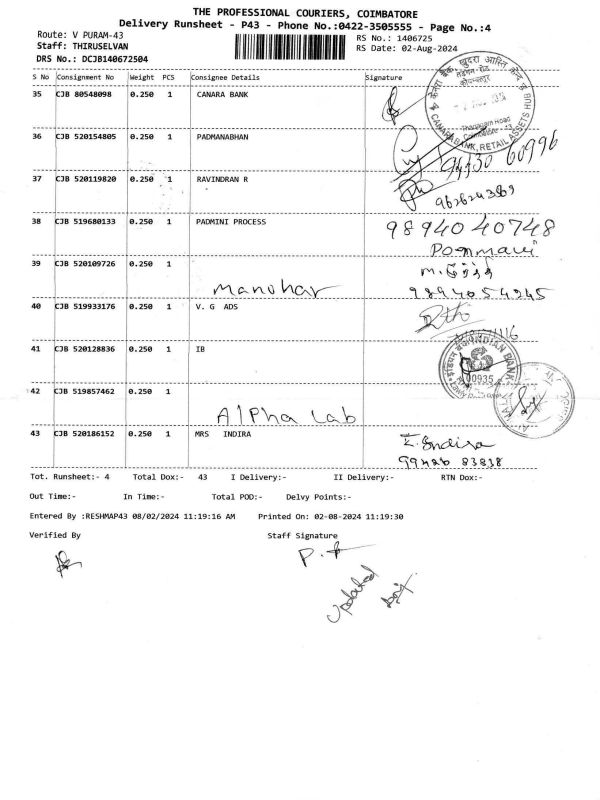 THE PROFESSIONAL COURIERS, COIMBATORE
Delivery Runsheet - P43 - Phone No.:0422-3505555 - Page No.:4
Route: V PURAM-43
RS No.: 1406725
Staff: THIRUSELVAN
RS Date: 02-Aug-2024
DRS No.: DCJB140672504
S No Consignment No Weight PCS Consignee Details Signature
35 CJB 80548098 0.250 1 CANARA BANK
CANARA BANK, RETAIL ASSETS HUB
36 CJB 520154805 0.250 1 PADMANABHAN
37 CJB 520119820 0.250 1 RAVINDRAN R
38 CJB 519680133 0.250 1 PADMINI PROCESS 9894040748
39 CJB 520109726 0.250 1
Manohar 9894054245
40 CJB 519933176 0.250 1 V. G ADS
41 CJB 520128836 0.250 1 IB
INDIAN BANK
00935
42 CJB 519857462 0.250 1
Alpha Lab
43 CJB 520186152 0.250 1 MRS INDIRA
Indira
99426 83838
Tot. Runsheet:- 4 Total Dox:- 43 I Delivery:- II Delivery:- RTN Dox:-
Out Time:- In Time:- Total POD:- Delvy Points:-
Entered By :RESHMAP43 08/02/2024 11:19:16 AM Printed On: 02-08-2024 11:19:30
Verified By Staff Signature
Updated